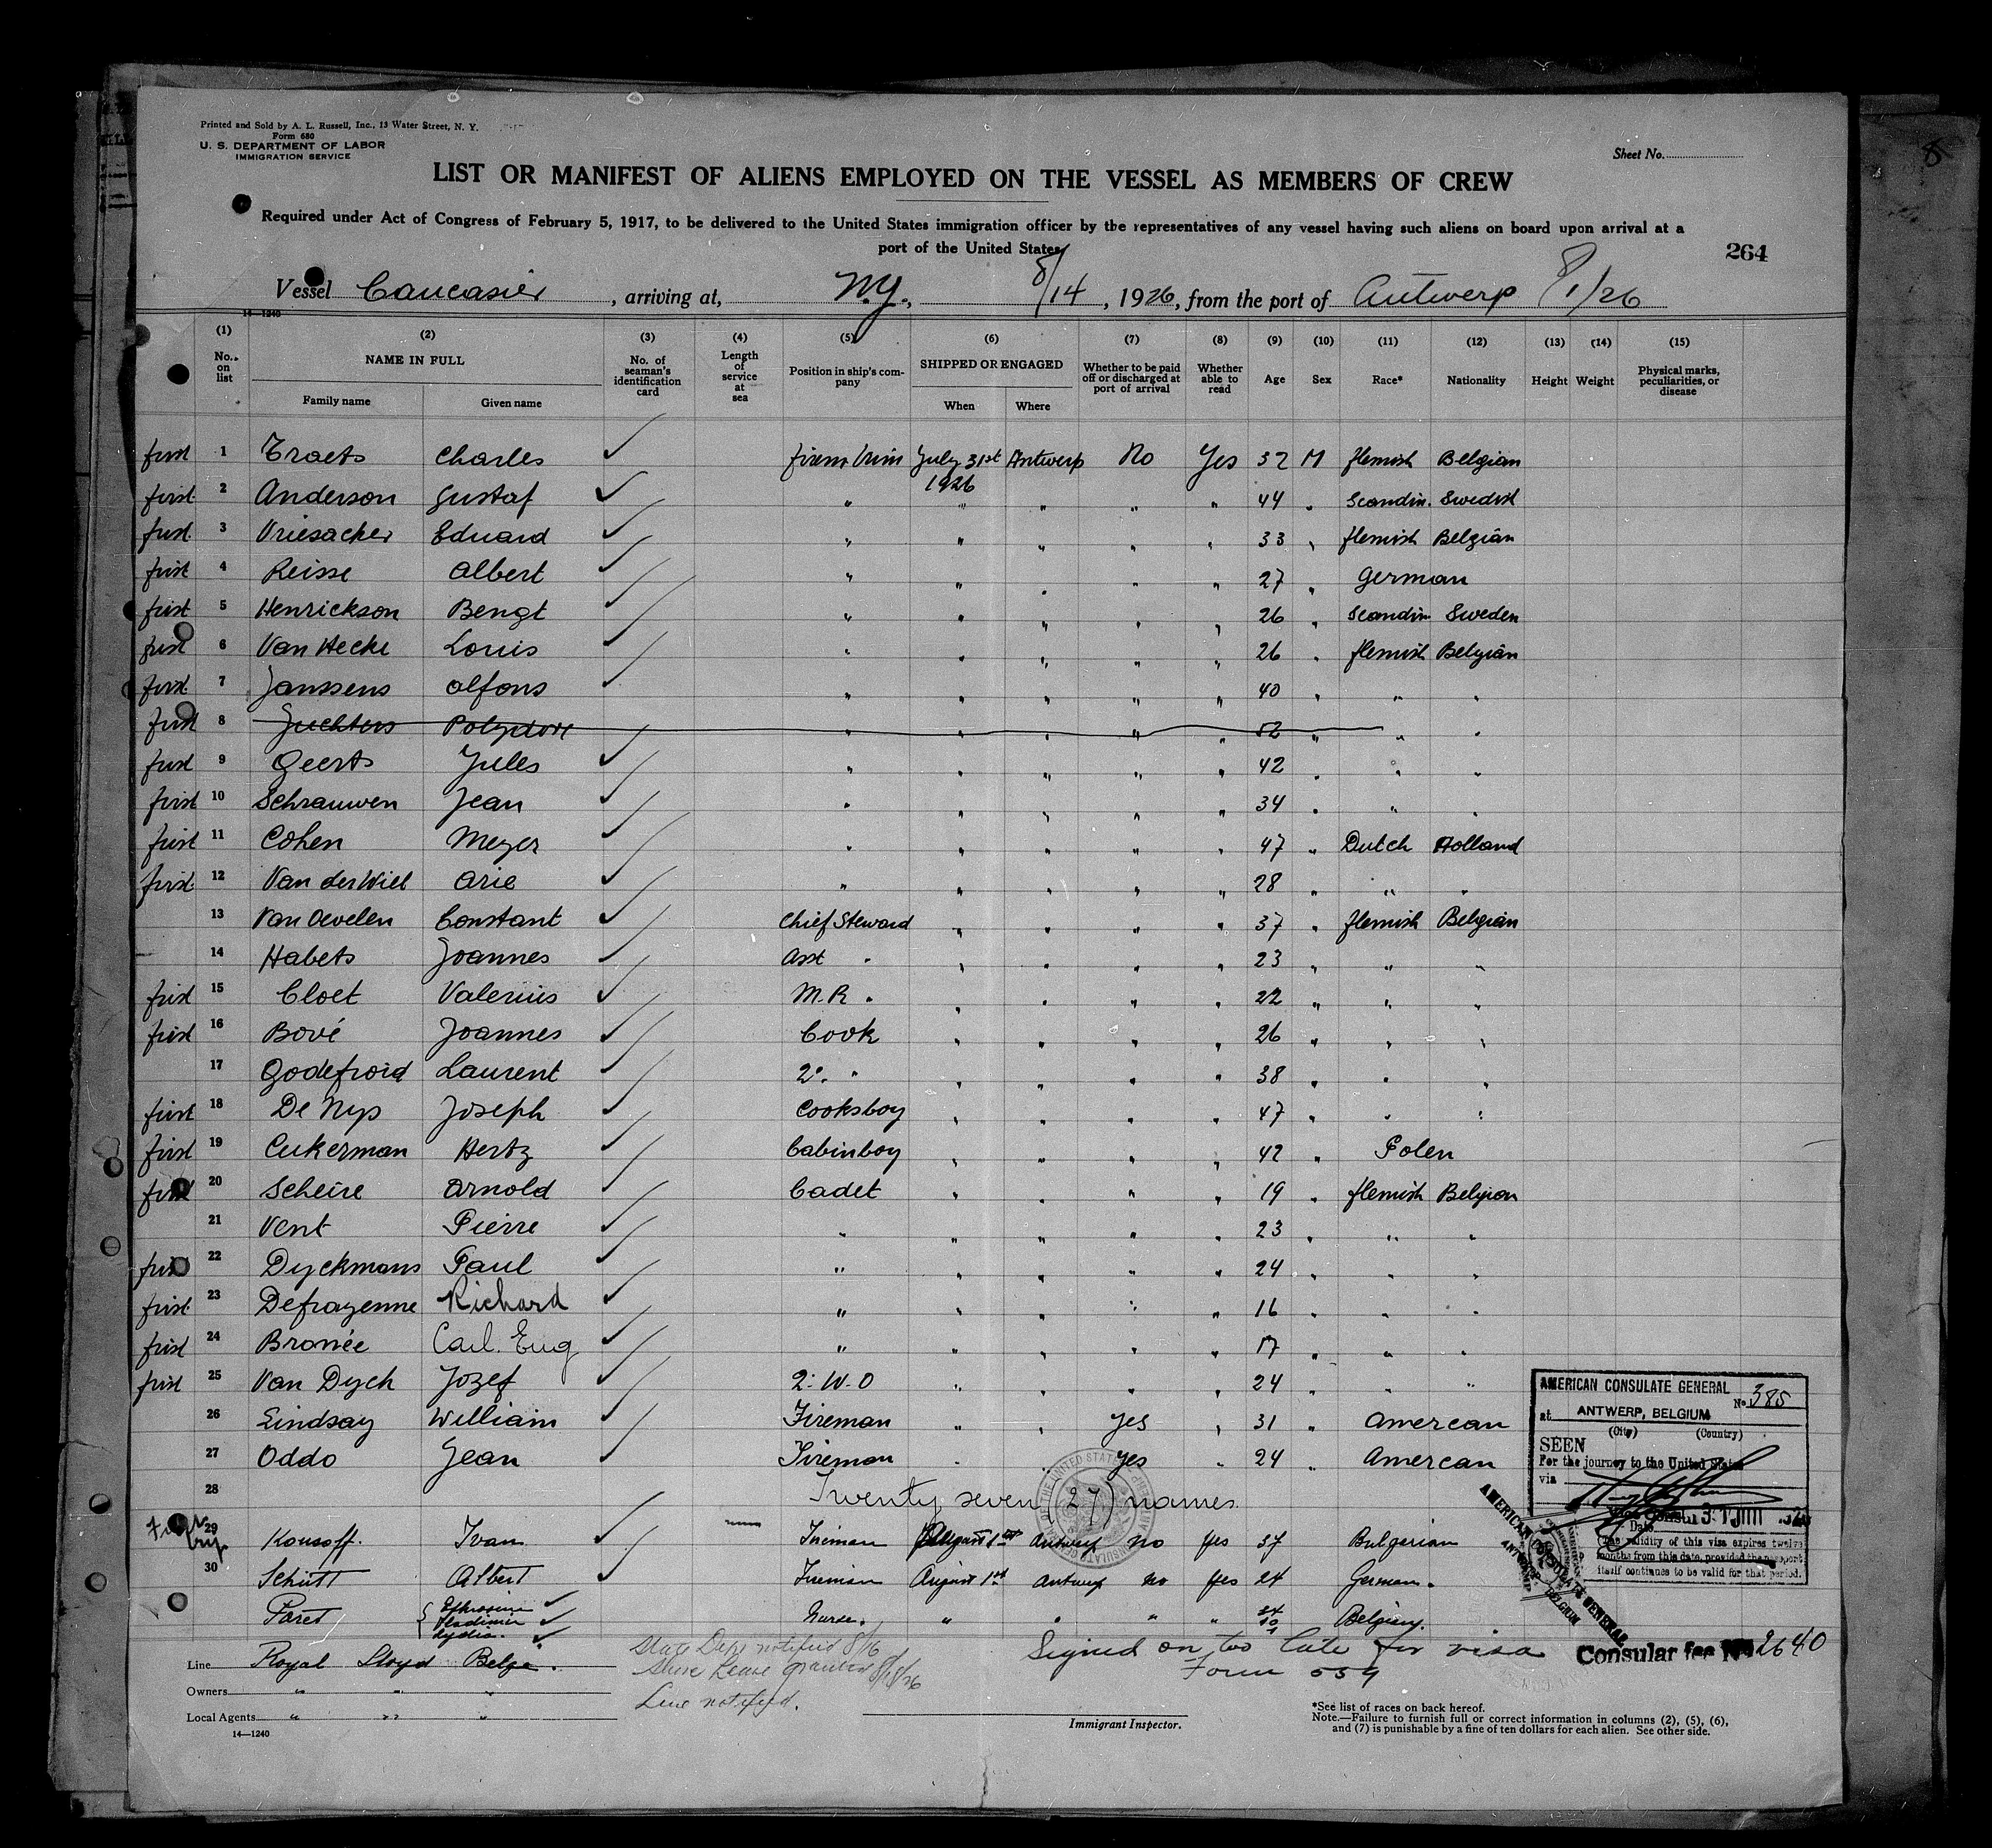 Printed and Sold by A. L. Russell, Inc., 13 Water Street, N. Y.
Form 680
U. S. DEPARTMENT OF LABOR
IMMIGRATION SERVICE
Sheet No.
8
LIST OR MANIFEST OF ALIENS EMPLOYED ON THE VESSEL AS MEMBERS OF CREW
Required under Act of Congress of February 5, 1917, to be delivered to the United States immigration officer by the representatives of any vessel having such aliens on board upon arrival at a
port of the United States
264
Vessel Caucasier, arriving at, N.Y., 8/14, 1926, from the port of Antwerp 8/1/26
14—1240
(1) (2) (3) (4) (5) (6) (7) (8) (9) (10) (11) (12) (13) (14) (15)
No. on list NAME IN FULL Family name Given name No. of seaman's identification card Length of service at sea Position in ship's company SHIPPED OR ENGAGED When Where Whether to be paid off or discharged at port of arrival Whether able to read Age Sex Race* Nationality Height Weight Physical marks, peculiarities, or disease
first 1 Traets Charles ✓ July 31st Antwerp No Yes 32 M flemish Belgian
1926
first 2 Anderson Gustaf ✓ " " " " " 44 " Scandin. Swedish
first 3 Vriesacker Eduard ✓ " " " " " 33 " flemish Belgian
first 4 Reisse Albert ✓ " " " " " 27 " German
first 5 Henrickson Bengt ✓ " " " " " 26 " Scandin Sweden
first 6 Van Hecke Louis ✓ " " " " " 26 " flemish Belgian
first 7 Janssens Alfons ✓ " " " " " 40 " " "
first 8 Polydore " " " " " 52 " " "
first 9 Geerts Jules ✓ " " " " " 42 " " "
first 10 Schrauwen Jean ✓ " " " " " 34 " " "
first 11 Cohen Meyer ✓ " " " " " 47 " Dutch Holland
first 12 Van der Wiel Arie ✓ " " " " " 28 " " "
13 Van Oevelen Constant ✓ Chief Steward " " " " 37 " flemish Belgian
14 Habets Joannes ✓ Asst " " " " " 23 " " "
first 15 Cloet Valerius ✓ M.R. " " " " " 22 " " "
first 16 Bové Joannes ✓ Cook " " " " 26 " " "
17 Godefroid Laurent ✓ 2°. " " " " " 38 " " "
first 18 De Nys Joseph ✓ Cooksboy " " " " 47 " " "
first 19 Cukerman Hertz ✓ Cabinboy " " " " 42 " Polen
first 20 Scheire Arnold ✓ Cadet " " " " 19 " flemish Belgian
21 Vent Pierre ✓ " " " " " 23 " " "
first 22 Dyckmans Paul ✓ " " " " " 24 " " "
first 23 Defrayenne Richard ✓ " " " " " 16 " " "
first 24 Bronée Carl. Eug ✓ " " " " " 17 " " "
first 25 Van Dyck Jozef ✓ 2: W.O " " " " 24 " " "
26 Lindsay William ✓ Fireman " " Yes " 31 " Amercan
27 Oddo Jean ✓ Fireman " " Yes " 24 " Amercan
28 Twenty seven (27) names
First trip 29 Kousoff. Ivan ✓ Fireman August 1st Antwerp No Yes 37 Bulgarian
30 Schütt Albert ✓ Fireman August 1st Antwerp No Yes 24 German.
Paret Vladimir ✓ Nurse. " " " " Belgium.
Lydia. ✓
AMERICAN CONSULATE GENERAL No 385
at ANTWERP, BELGIUM
(City) (Country)
SEEN
For the journey to the United States
via
Date
The validity of this visa expires twelve
months from this date, provided the passport
itself continues to be valid for that period.
AMERICAN CONSULATE GENERAL
ANTWERP BELGIUM
Consular fee 2640
Signed on too late for visa
Form 559
State Dept notified 8/16
Shore Leave granted 8/15/26
Line notified.
Line Royal Lloyd Belge.
Owners " " "
Local Agents " " "
14—1240
Immigrant Inspector.
*See list of races on back hereof.
Note.—Failure to furnish full or correct information in columns (2), (5), (6),
and (7) is punishable by a fine of ten dollars for each alien. See other side.